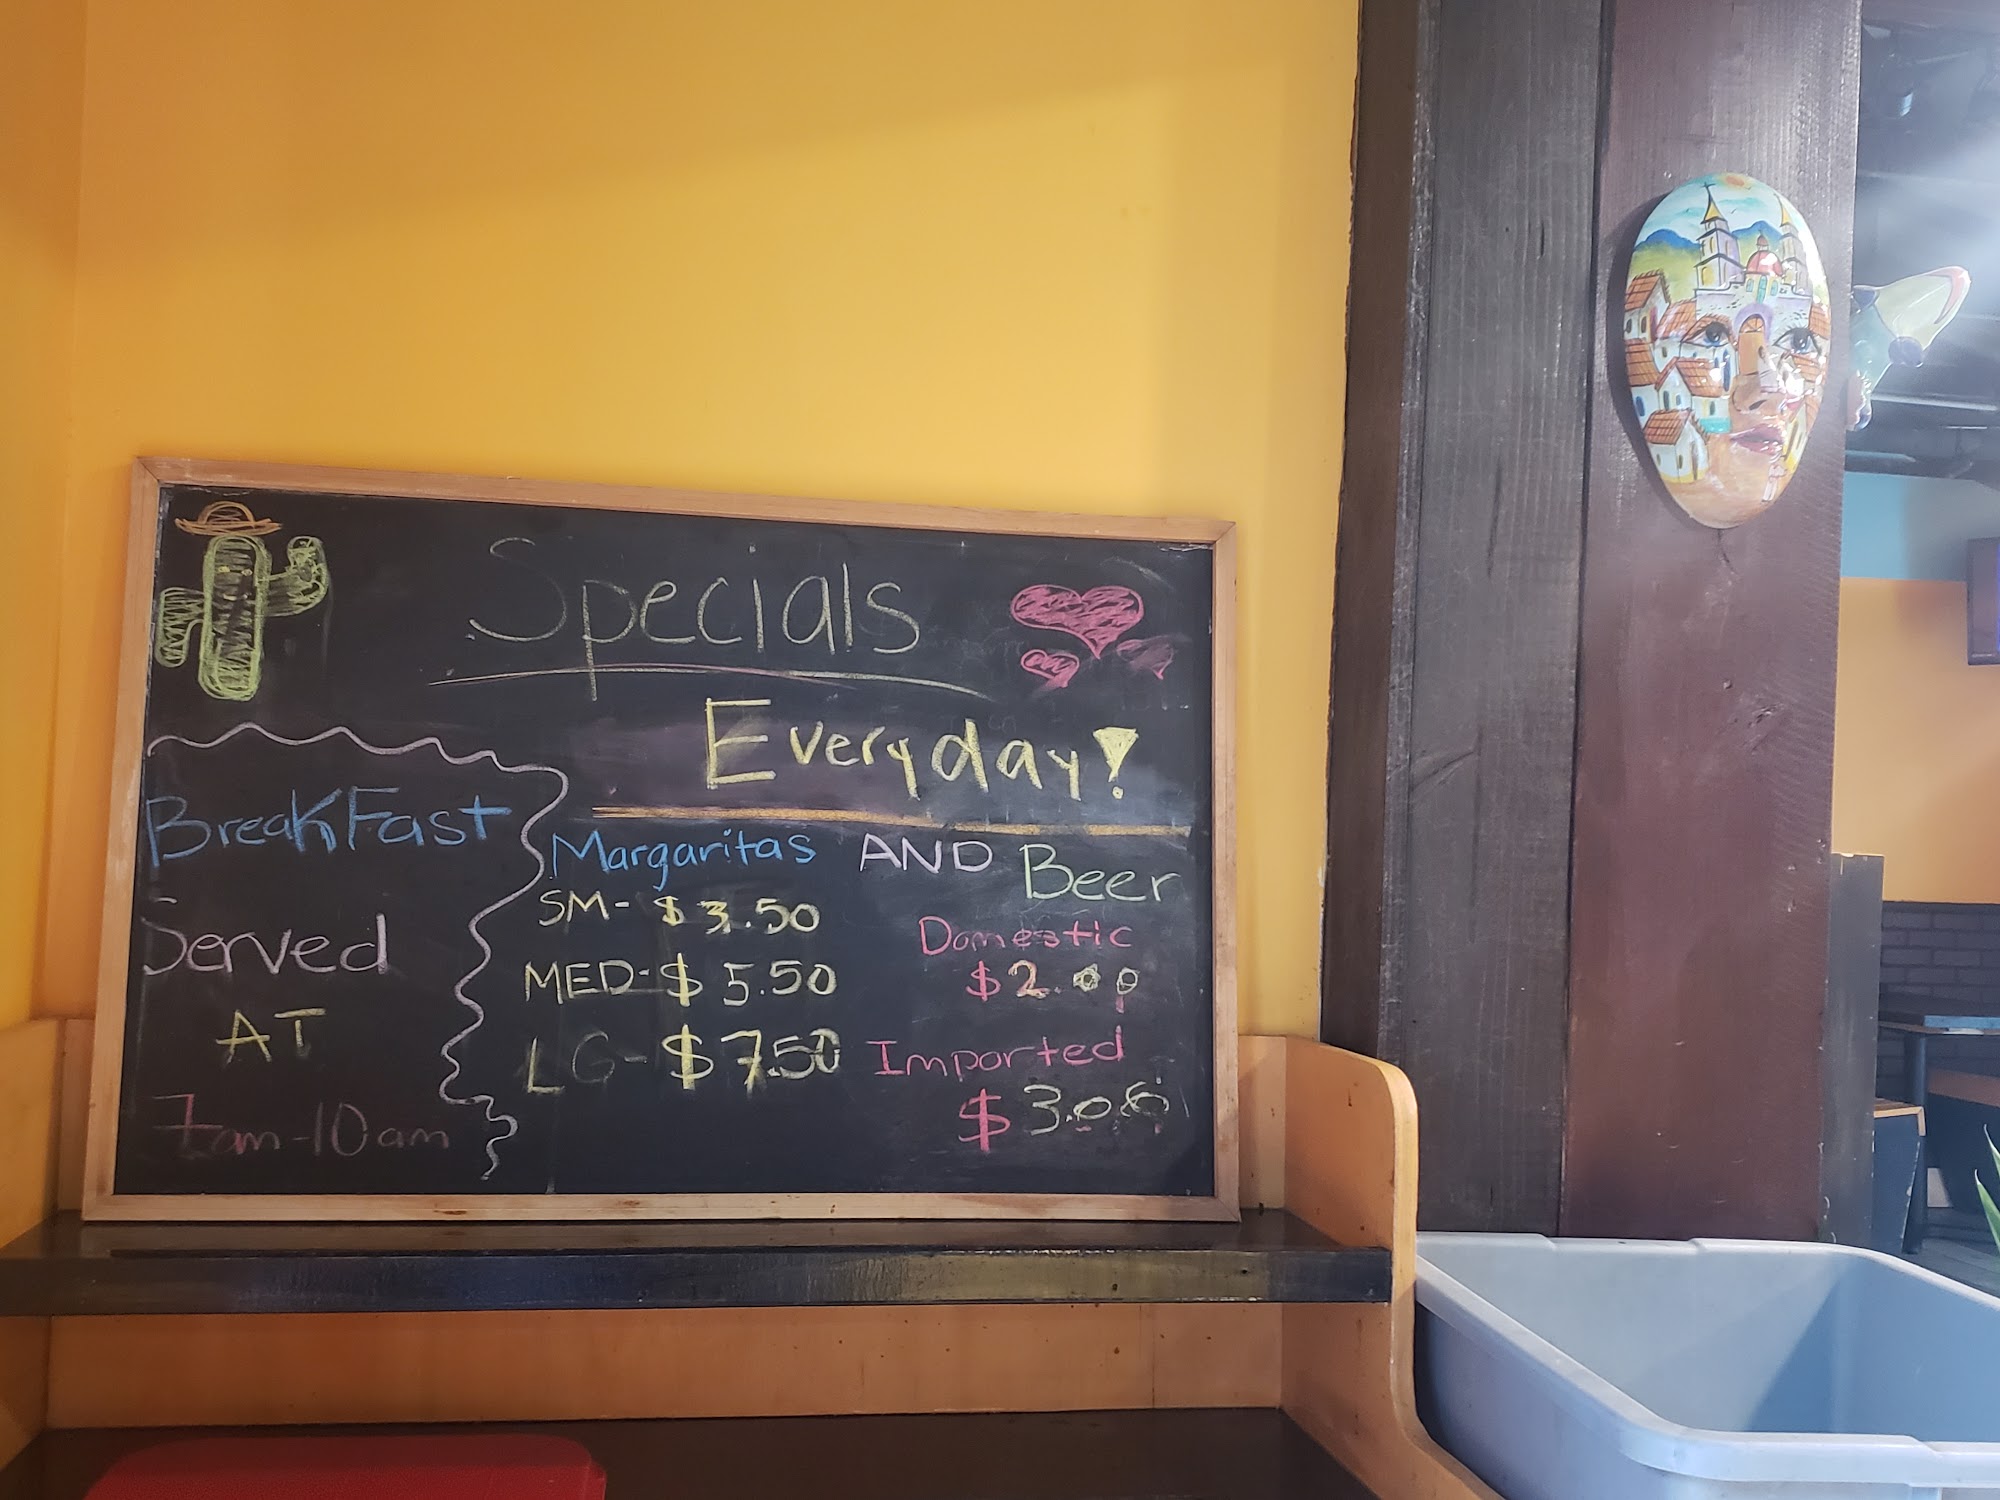 Specials
Everyday!
BreakFast
Served
AT
7am-10am
Margaritas AND Beer
SM- $3.50
MED- $5.50
LG- $7.50
Domestic
$2.00
Imported
$3.00